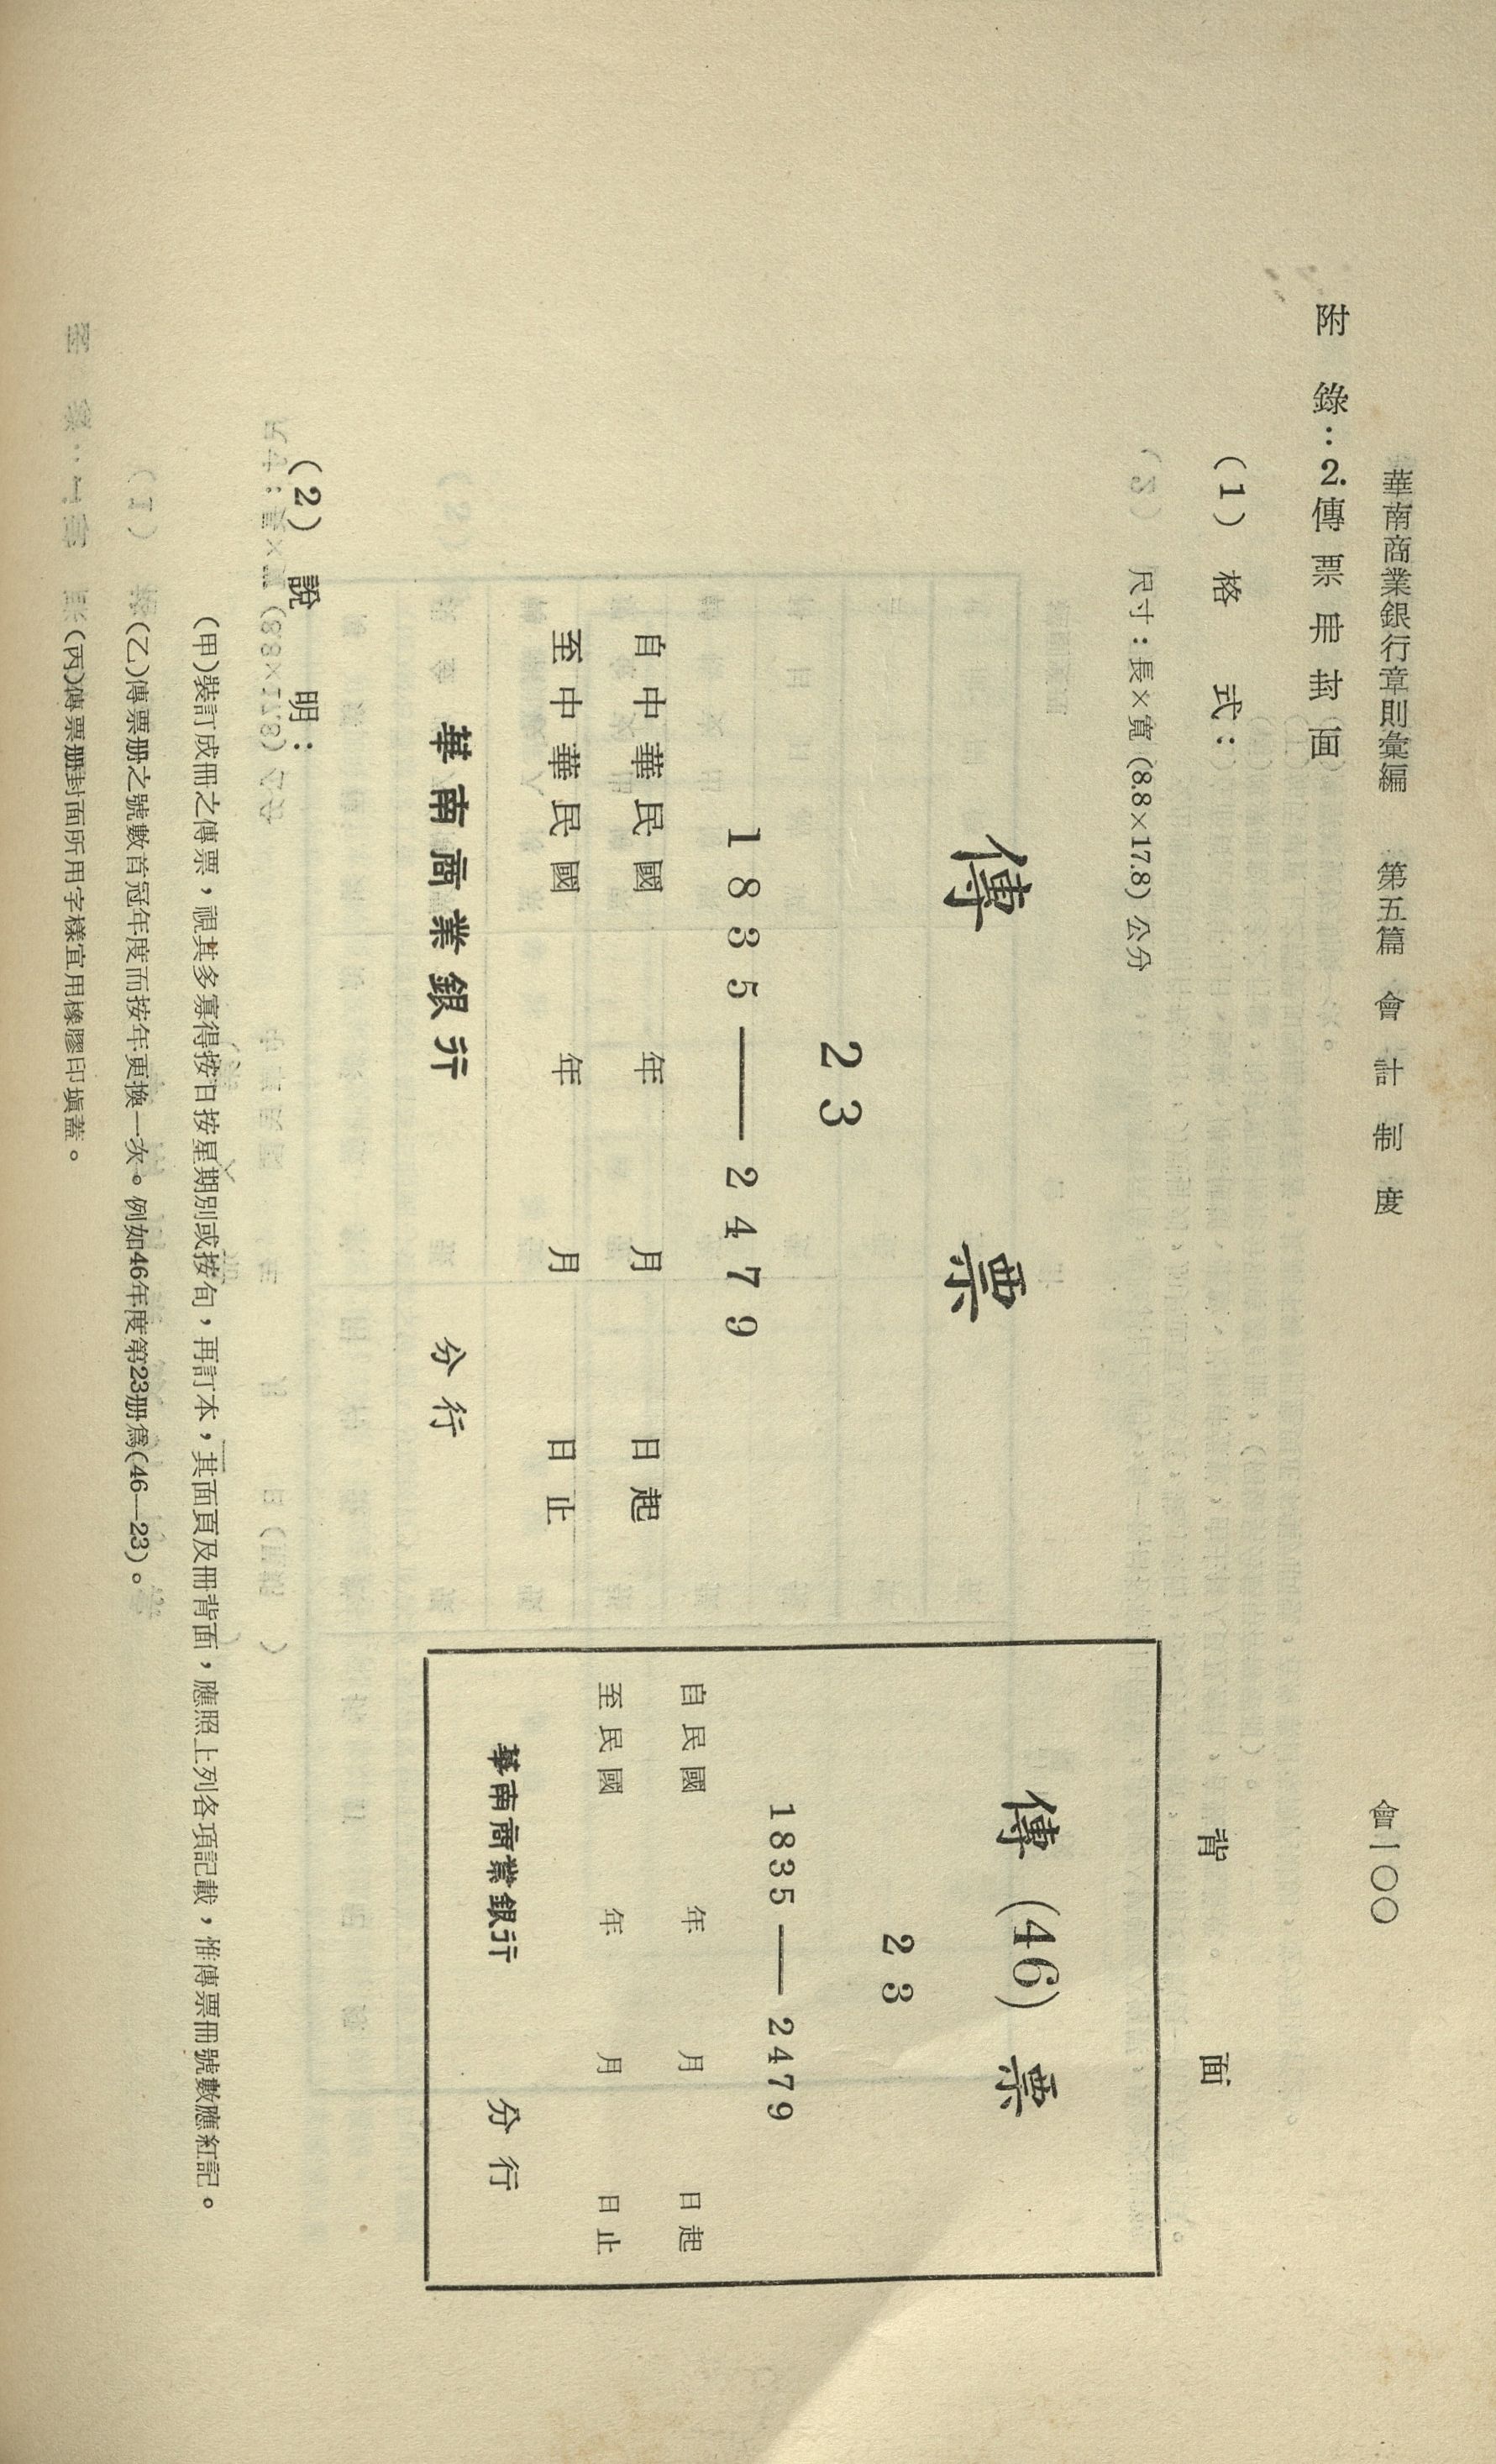 華南商業銀行章則彙編 第五篇 會計制度 會一〇〇
附錄：2.傳票冊封面
(1) 格式：
背面
尺寸：長×寬 (8.8×17.8) 公分
傳票
23
1835——2479
自中華民國 年 月 日起
至中華民國 年 月 日止
華南商業銀行 分行
傳 (46) 票
23
1835——2479
自民國 年 月 日起
至民國 年 月 日止
華南商業銀行 分行
(2) 說明：
(甲)裝訂成冊之傳票，視其多寡得按日按星期別或按旬，再訂本，其面頁及冊背面，應照上列各項記載，惟傳票冊號數應紅記。
(乙)傳票册之號數首冠年度而按年更換一次。例如46年度第23册爲(46—23)。
(丙)傳票册封面所用字樣宜用橡膠印塡蓋。